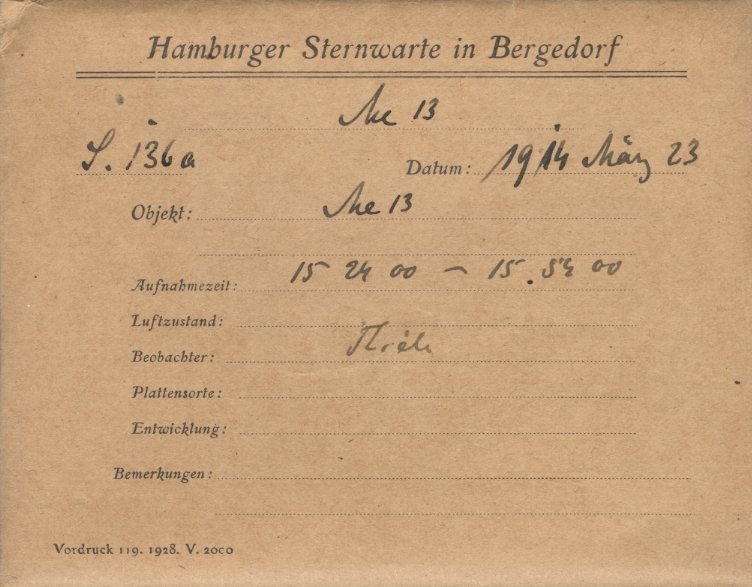 Hamburger Sternwarte in Bergedorf
Me 13
S. 136a Datum: 1914 März 23
Objekt: Me 13
Aufnahmezeit: 15 24 00 – 15 54 00
Luftzustand:
Beobachter:
Plattensorte:
Entwicklung:
Bemerkungen:
Vordruck 119. 1928. V. 2000